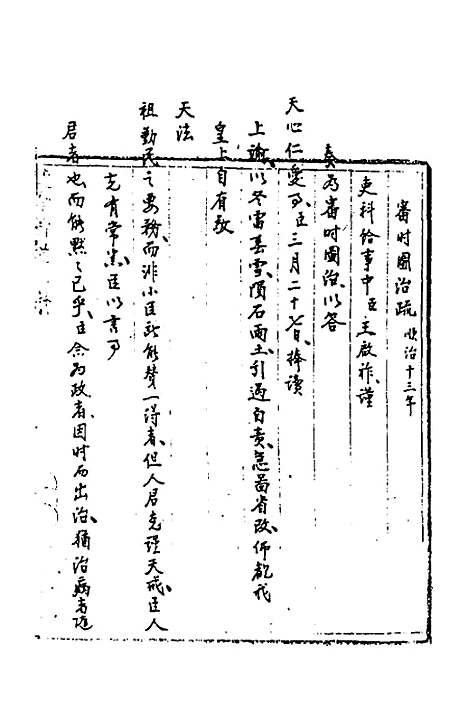 審时圖治疏 順治十三年
吏科給事中臣王啟祚謹
奏为審时圖治以答
天心仁愛事臣三月二十七日捧讀
上諭以冬雷春雪隕石雨土引過自責急啚省改仰乾我
皇上自有敬
天法
祖勤民之要務而非小臣所能赞一得者但人君克謹天戒臣人
克有常憲臣以言事
君者也而能默〻已乎臣念为政者因时而出治猶治病者随